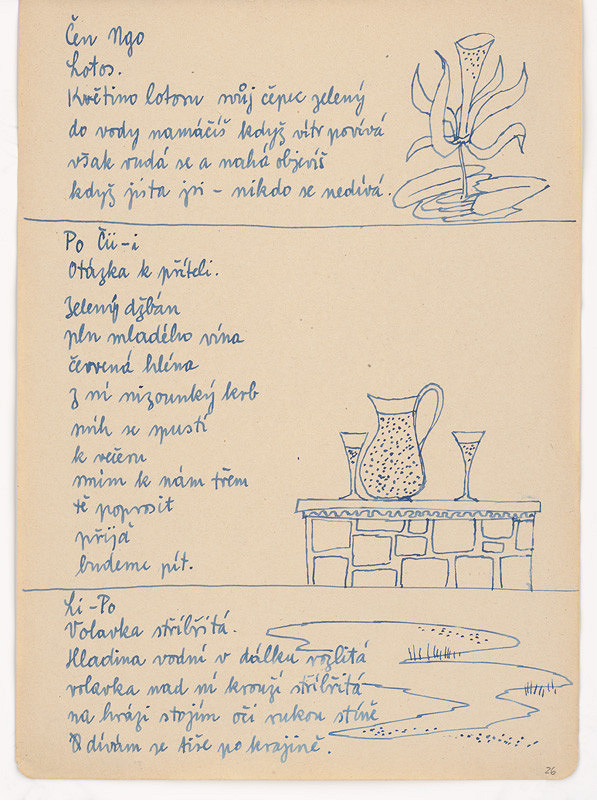 Čen Ngo
Lotos.
Květino lotosu svůj čepec zelený
do vody namáčíš když vítr povívá
však rudá se a nahá objevíš
když jista jsi – nikdo se nedívá.
Po Čü-i
Otázka k příteli.
Zelený džbán
pln mladého vína
červená hlína
z ní nizounký krb
sníh se spustí
k večeru
smím k nám třem
tě poprosit
přijď
budeme pít.
Li-Po
Volavka stříbřitá.
Hladina vodní v dálku rozlitá
volavka nad ní krouží stříbřitá
na hrázi stojím oči rukou stíně
dívám se tiše po krajině.
26